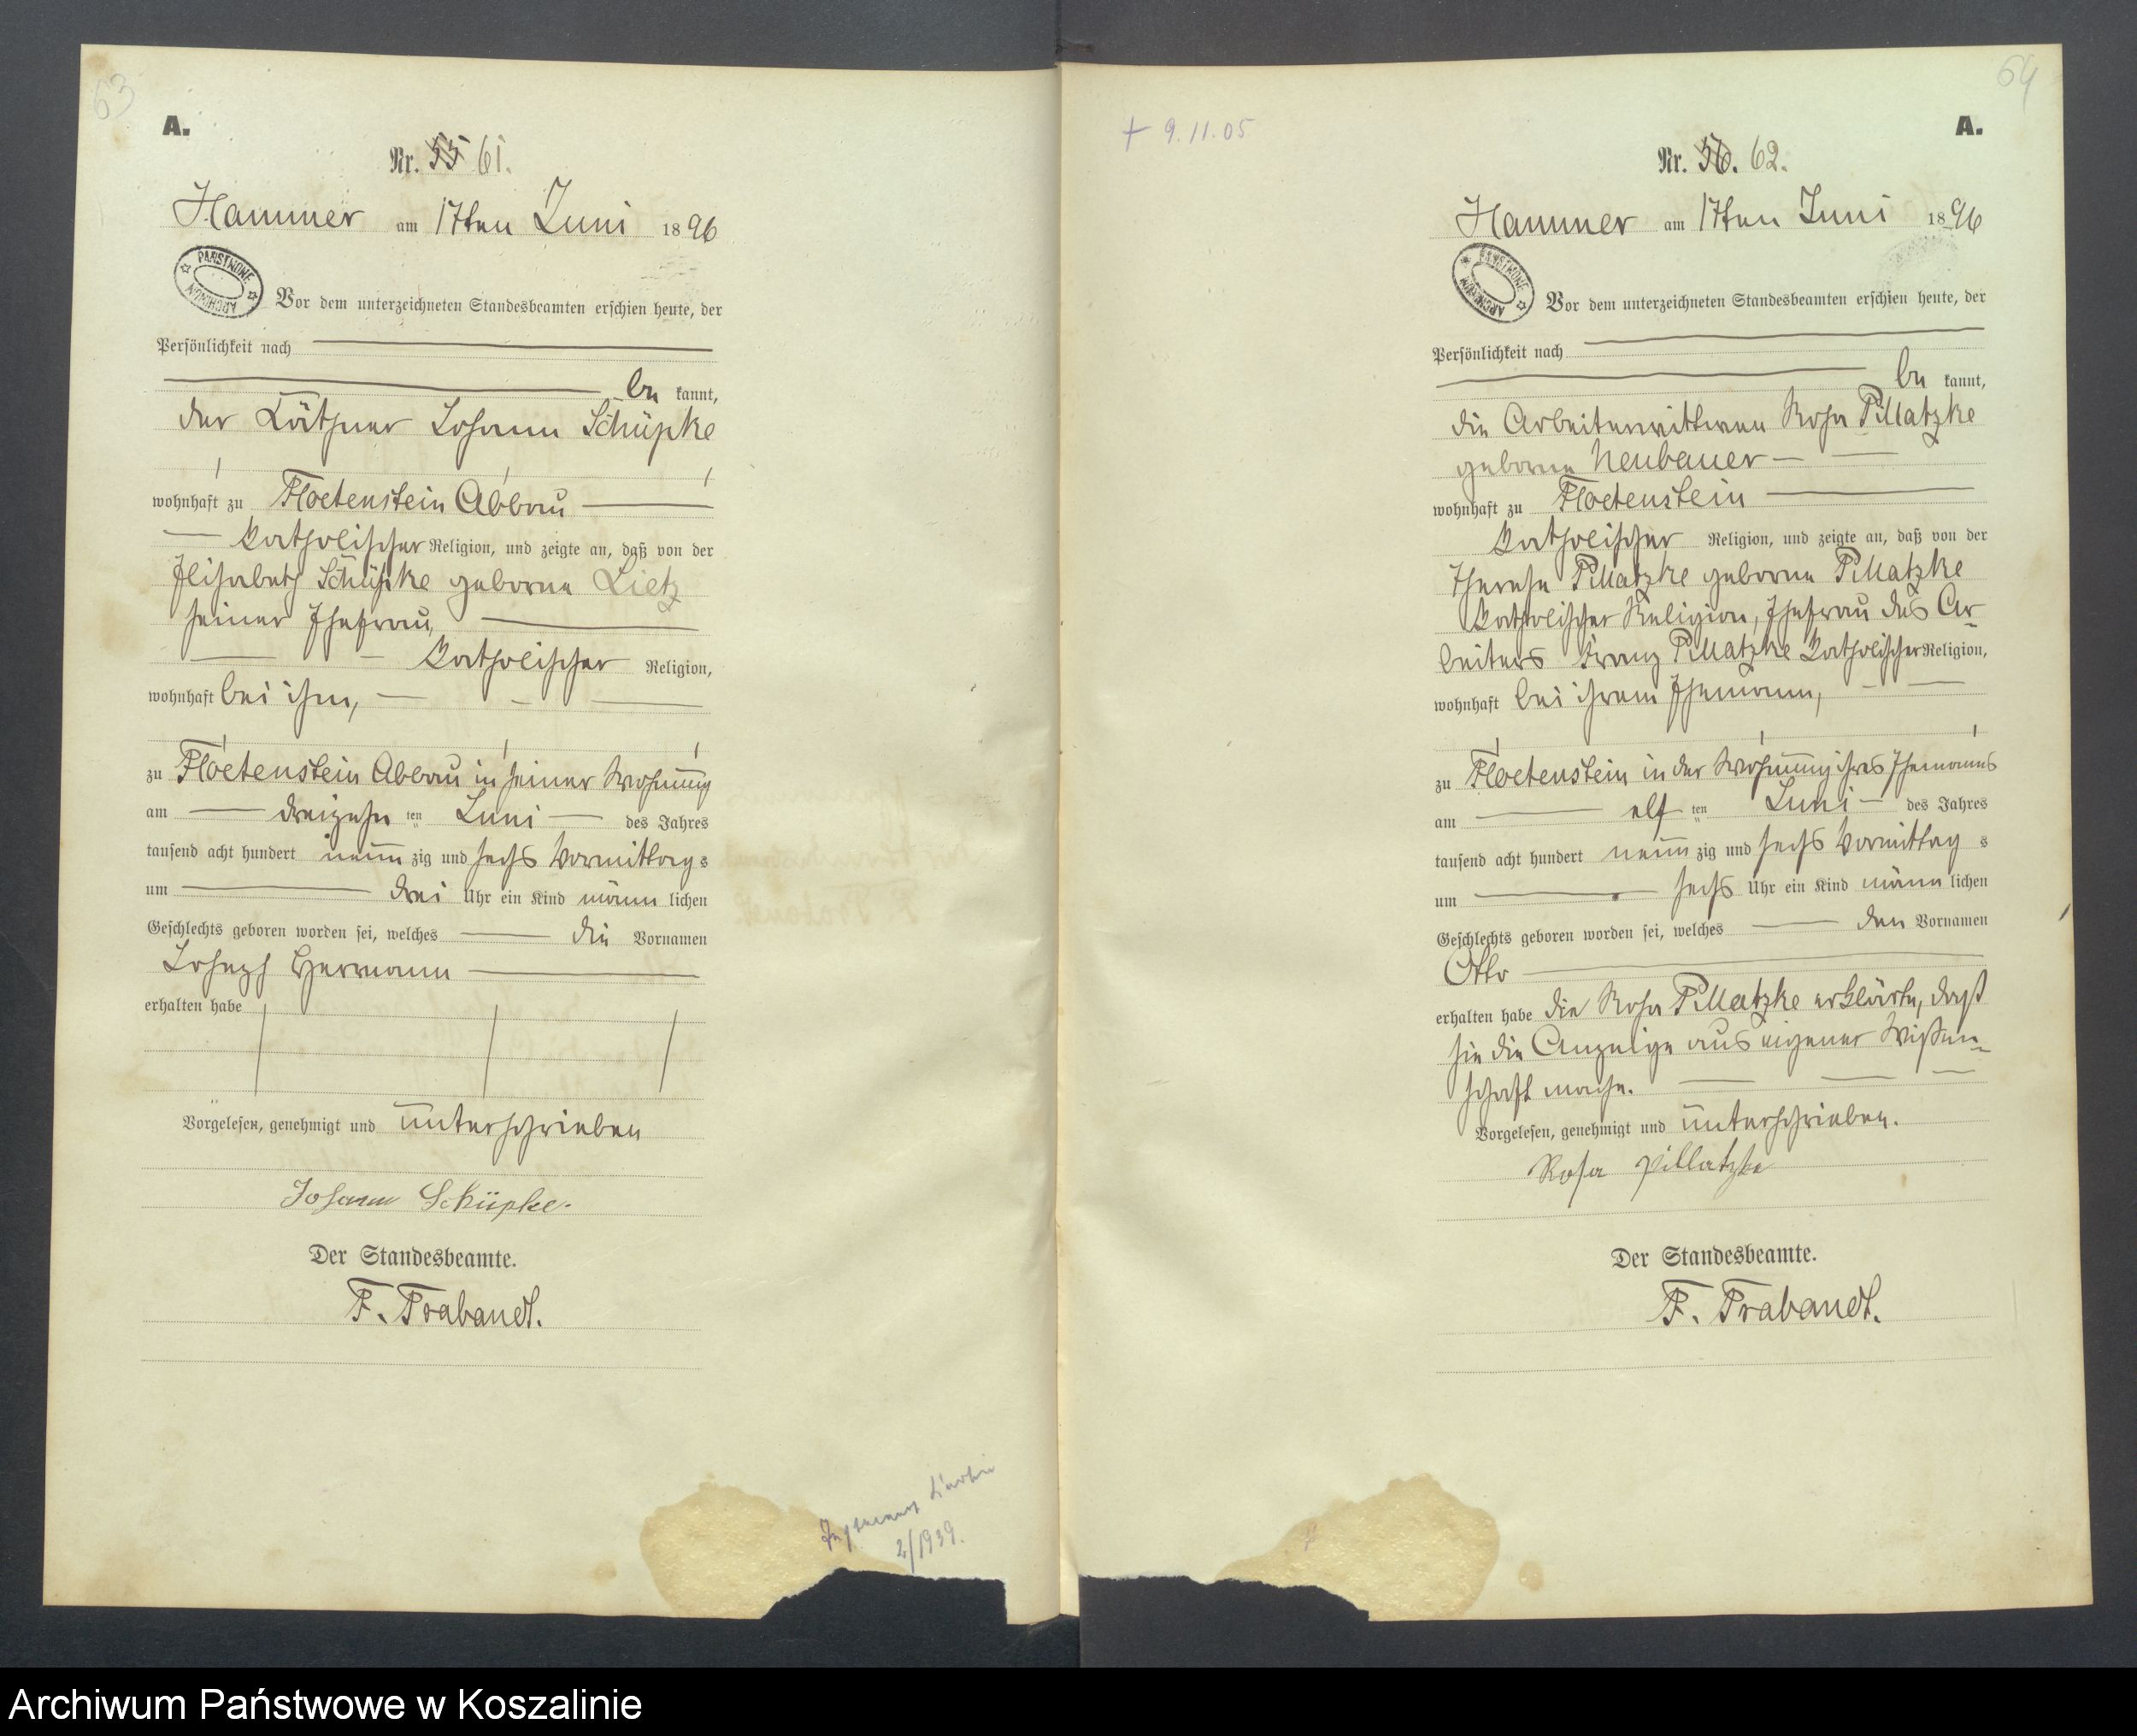 63
A.
Nr. 55 61.
Hammer am 17ten Juni 1896
PAŃSTWOWE
ARCHIWUM
Vor dem unterzeichneten Standesbeamten erschien heute, der
Persönlichkeit nach
be kannt,
der Käthner Johann Schüpke
wohnhaft zu Floetenstein Abbau
katholischer Religion, und zeigte an, daß von der
Elisabeth Schüpke geborne Lietz
seiner Ehefrau,
katholischer Religion,
wohnhaft bei ihm,
zu Floetenstein Abbau in seiner Wohnung
am dreizehn ten Juni des Jahres
tausend acht hundert neun zig und sechs Vormittag s
um drei Uhr ein Kind männ lichen
Geschlechts geboren worden sei, welches die Vornamen
Joseph Hermann
erhalten habe
Vorgelesen, genehmigt und unterschrieben
Johann Schüpke.
Der Standesbeamte.
F. Trabandt.
2/1939.
64
+ 9.11.05
A.
Nr. 56. 62.
Hammer am 17ten Juni 1896
PAŃSTWOWE
ARCHIWUM
Vor dem unterzeichneten Standesbeamten erschien heute, der
Persönlichkeit nach
be kannt,
die Arbeiterwittwe Rosa Pillatzke
geborne Neubauer
wohnhaft zu Floetenstein
katholischer Religion, und zeigte an, daß von der
Therese Pillatzke geborne Pillatzke
katholischer Religion, Ehefrau des Ar-
beiters Franz Pillatzke katholischer Religion,
wohnhaft bei ihrem Ehemann,
zu Floetenstein in der Wohnung ihres Ehemannes
am elf ten Juni des Jahres
tausend acht hundert neun zig und sechs Vormittag s
um sechs Uhr ein Kind männ lichen
Geschlechts geboren worden sei, welches den Vornamen
Otto
erhalten habe die Rosa Pillatzke erklärte, daß
sie die Anzeige aus eigener Wissen-
schaft mache.
Vorgelesen, genehmigt und unterschrieben.
Rosa Pillatzke
Der Standesbeamte.
F. Trabandt.
Archiwum Państwowe w Koszalinie